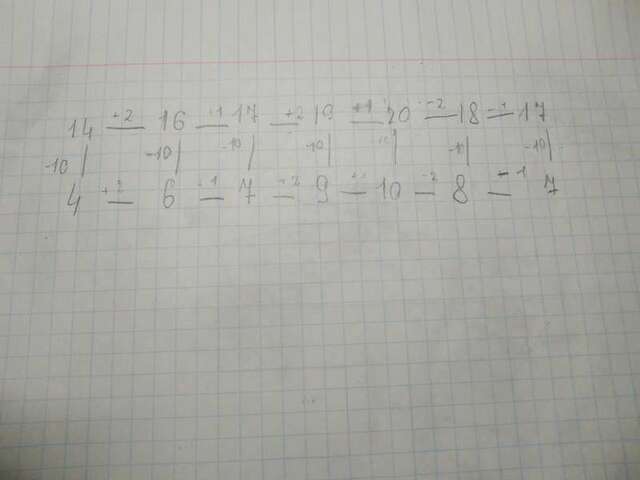 14 +2 16 +1 17 +2 19 +1 20 -2 18 -1 17
-10 -10 -10 -10 -10 -10
4 +2 6 +1 7 +2 9 10 -2 8 -1 7